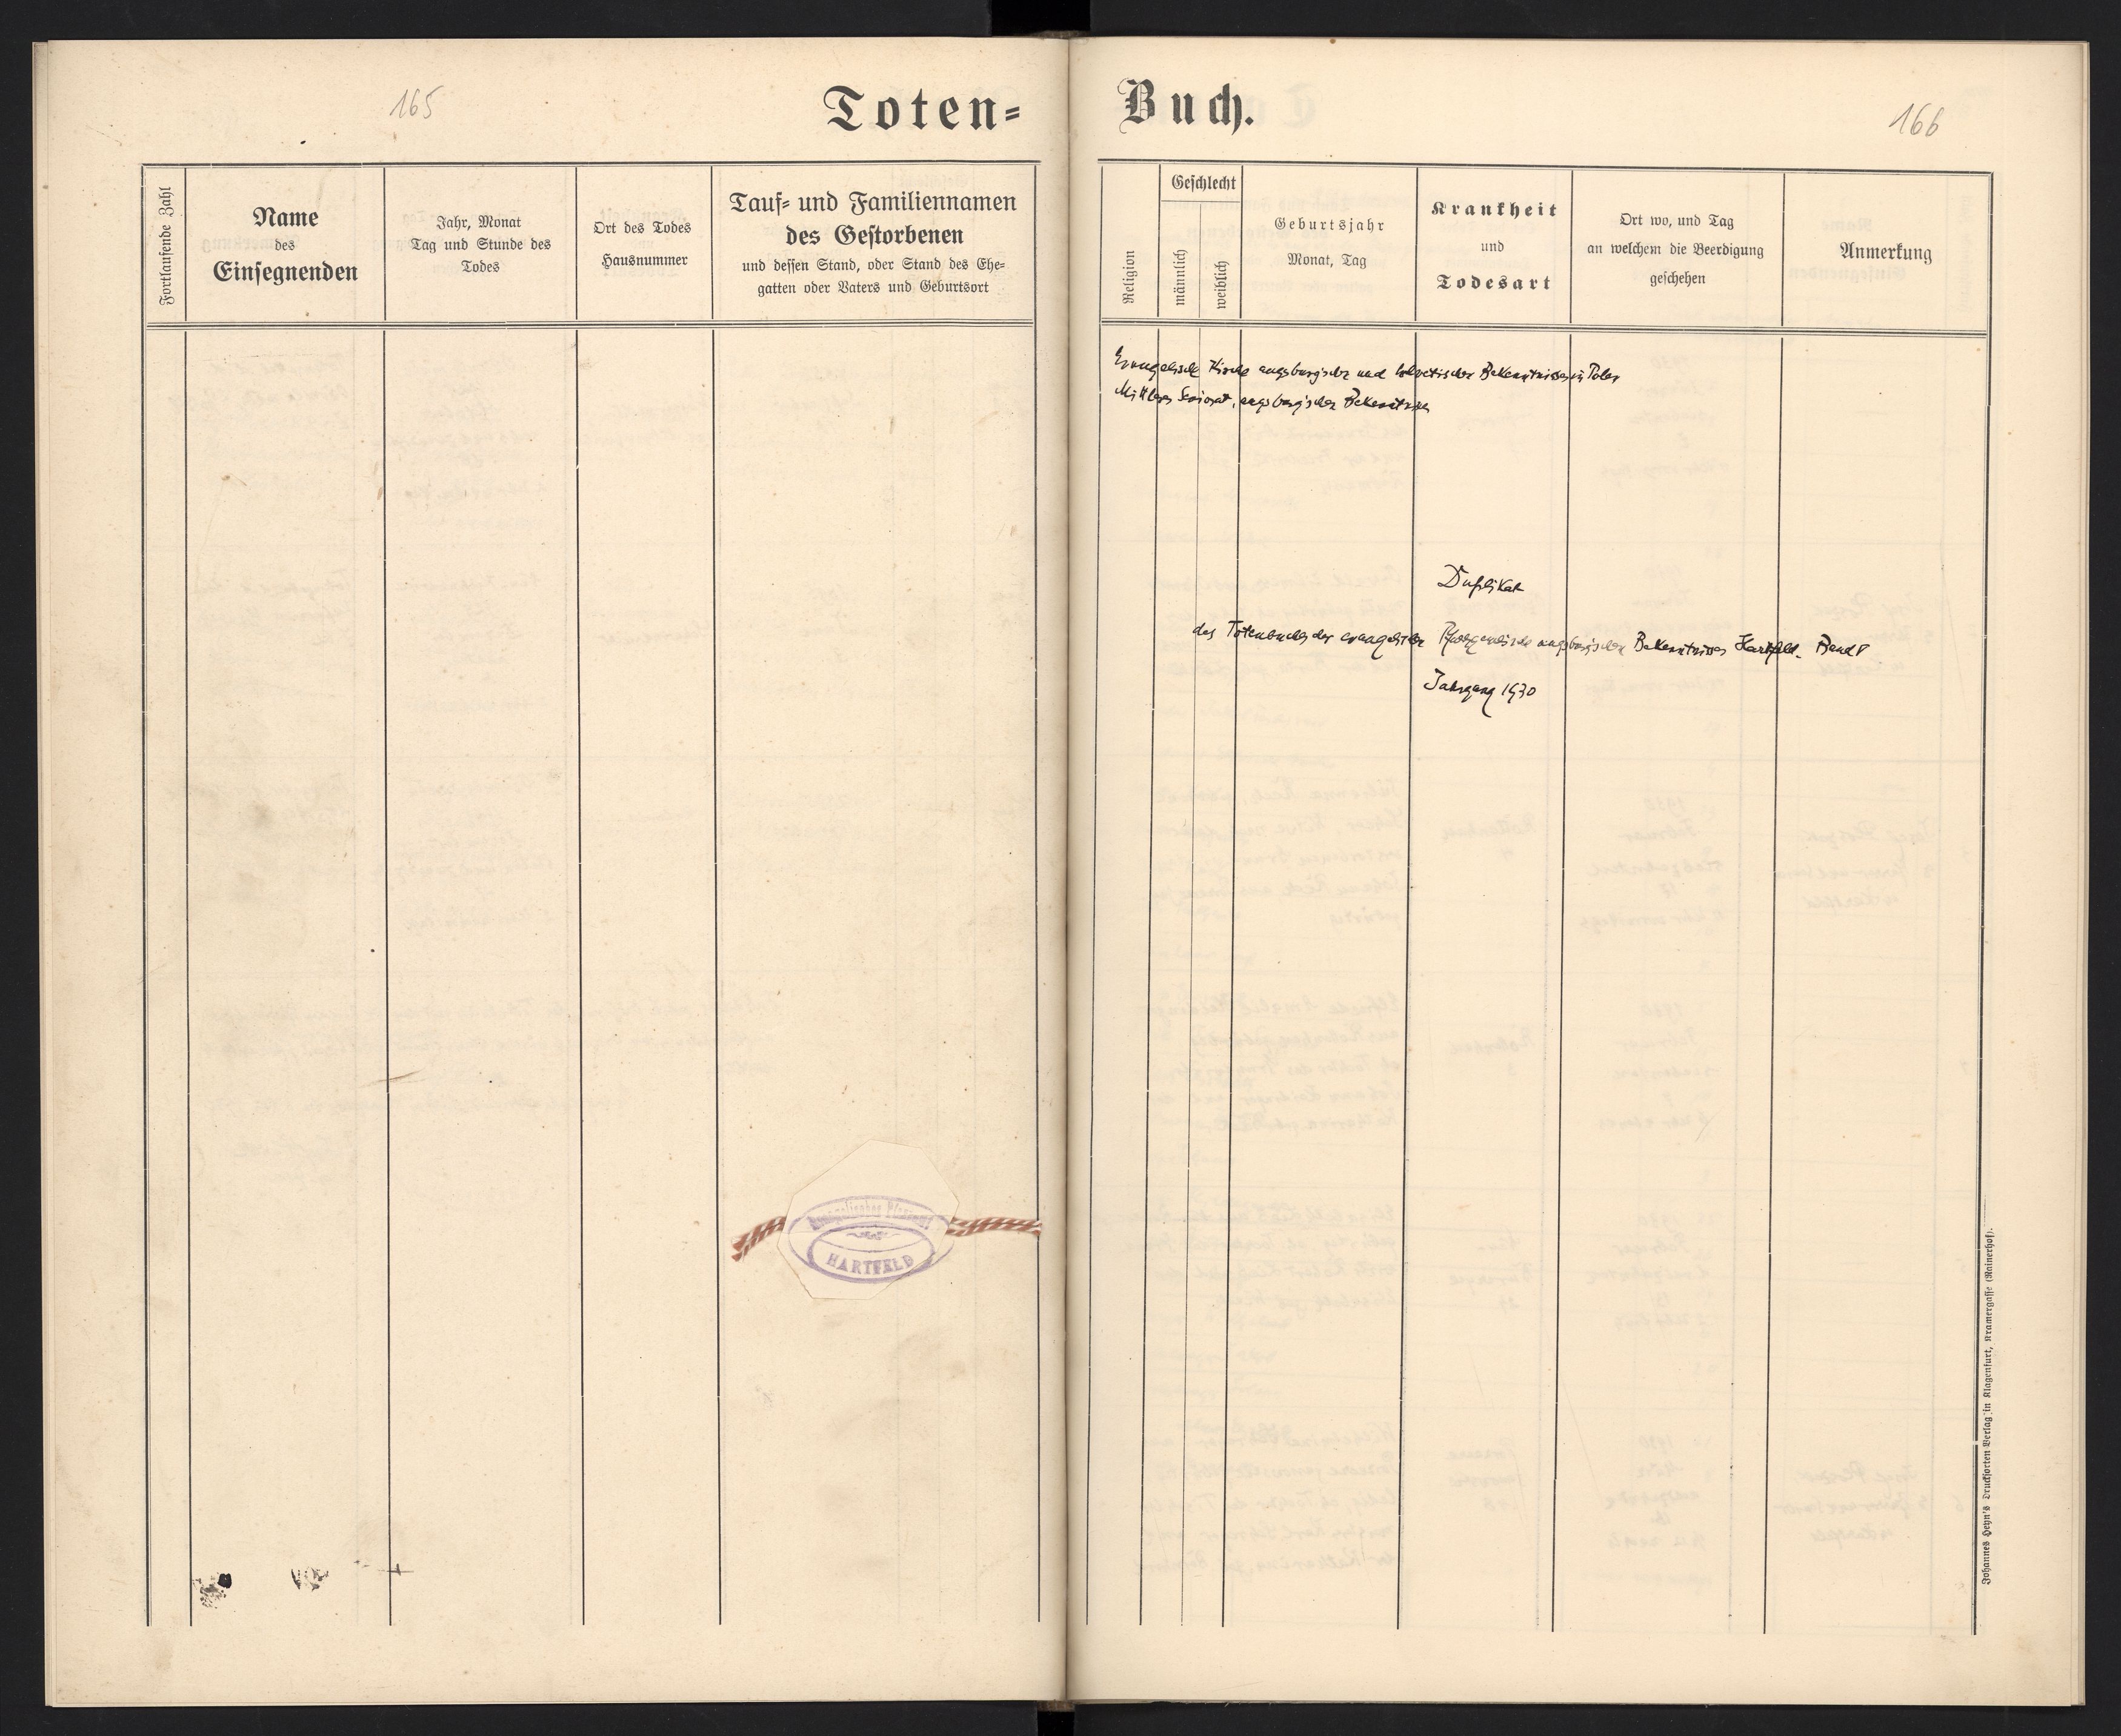 165
Toten-
Fortlaufende Zahl
Name
des
Einsegnenden
Jahr, Monat
Tag und Stunde des
Todes
Ort des Todes
Hausnummer
Tauf- und Familiennamen
des Gestorbenen
und dessen Stand, oder Stand des Ehe-
gatten oder Vaters und Geburtsort
Evangelisches Pfarramt
HARTFELD
Buch.
166
Religion
Geschlecht
männlich
weiblich
Geburtsjahr
Monat, Tag
Krankheit
und
Todesart
Ort wo, und Tag
an welchem die Beerdigung
geschehen
Anmerkung
Evangelische Kirche augsburgischen und helvetischen Bekenntnisses in Polen
Mittleres Seniorat, augsburgischen Bekenntnisses
Duplikat
des Totenbuches der evangelischen Pfarrgemeinde augsburgischen Bekenntnisses Hartfeld. Band
Jahrgang 1930
Johannes Heyn's Drucksorten Verlag in Klagenfurt, Kramergasse (Rainerhof).